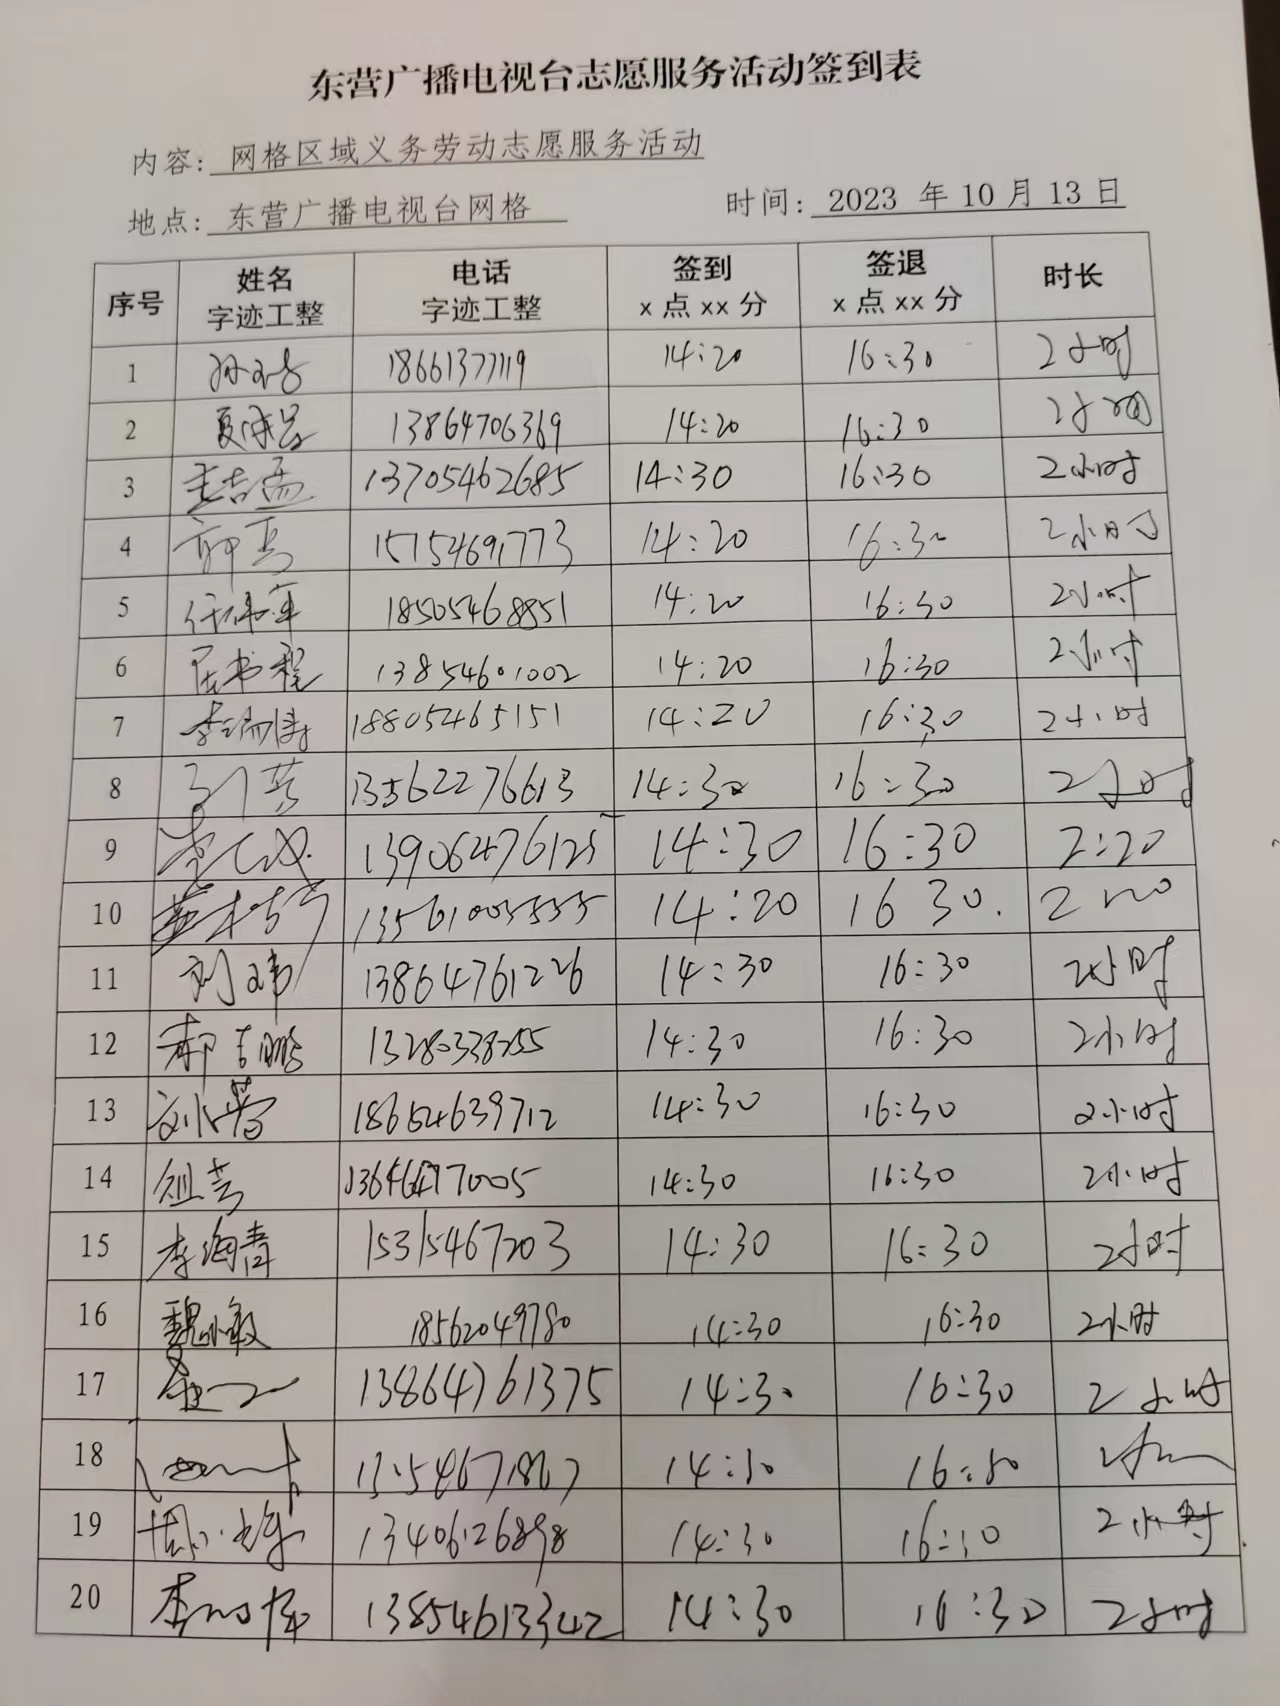 东营广播电视台志愿服务活动签到表
内容: 网格区域义务劳动志愿服务活动
地点: 东营广播电视台网格 时间: 2023 年 10 月 13 日
序号 姓名 电话 签到 签退 时长
字迹工整 字迹工整 x 点 xx 分 x 点 xx 分
1 18661377119 14:20 16:30 2小时
2 13864706369 14:20 16:30 2小时
3 王吉孟 13705462685 14:30 16:30 2小时
4 15154691773 14:20 16:30 2小时
5 任伟军 18505468851 14:20 16:30 2小时
6 任书程 13854601002 14:20 16:30 2小时
7 李瑞涛 18805465151 14:20 16:30 2小时
8 13562276613 14:30 16:30 2小时
9 13906476125 14:30 16:30 2:20
10 13561005555 14:20 16 30.
11 刘玮 13864761226 14:30 16:30 2小时
12 郝吉鹏 14:30 16:30 2小时
13 刘小营 18654639712 14:30 16:30 2小时
14 14:30 16:30 2小时
15 李海青 15315467203 14:30 16:30 2小时
16 魏小敏 18562049780 14:30 16:30 2小时
17 13864761375 14:30 16:30 2小时
18 14:30 16:30
19 13406126898 14:30 16:30 2小时
20 13854613342 14:30 16:30 2小时